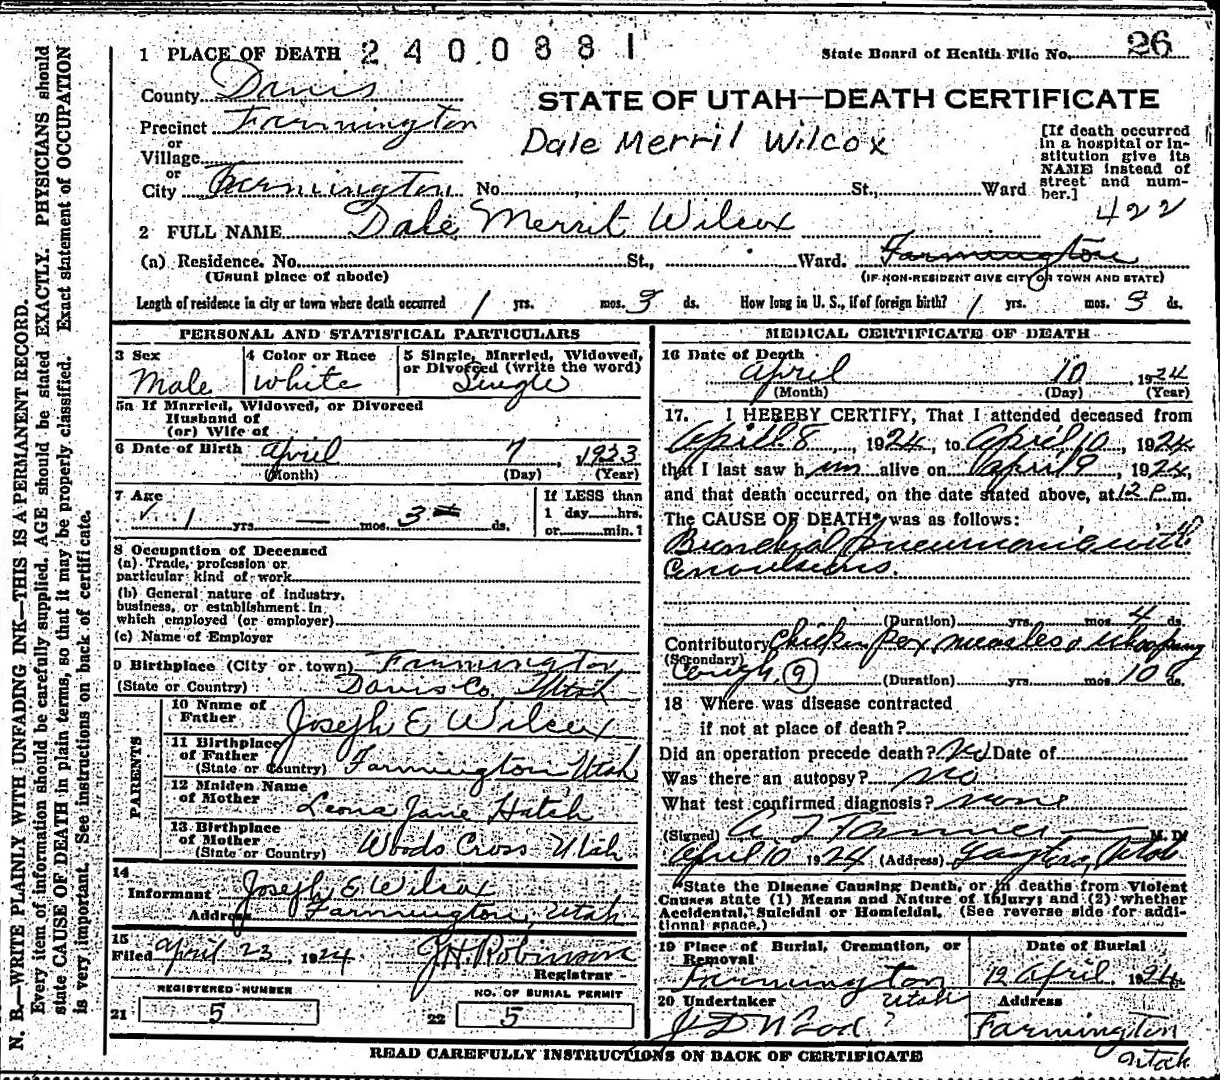 1 PLACE OF DEATH 2400881 State Board of Health File No. 26
County Davis
STATE OF UTAH—DEATH CERTIFICATE
Precinct Farmington
or
Village
or
City Farmington No. St., Ward
Dale Merril Wilcox
[If death occurred
in a hospital or in-
stitution give its
NAME instead of
street and num-
ber.]
422
2 FULL NAME Dale Merrit Wilcox
(a) Residence. No. St., Ward. Farmington
(Usual place of abode) (IF NON-RESIDENT GIVE CITY OR TOWN AND STATE)
Length of residence in city or town where death occurred 1 yrs. mos. 3 ds. How long in U. S., if of foreign birth? 1 yrs. mos. 3 ds.
PERSONAL AND STATISTICAL PARTICULARS
3 Sex 4 Color or Race 5 Single, Married, Widowed,
or Divorced (write the word)
Male white Single
5a If Married, Widowed, or Divorced
Husband of
(or) Wife of
6 Date of Birth April 7, 1923
(Month) (Day) (Year)
7 Age If LESS than
1 yrs. — mos. 3 ds. 1 day hrs.
or min.
8 Occupation of Deceased
(a) Trade, profession or
particular kind of work
(b) General nature of industry,
business, or establishment in
which employed (or employer)
(c) Name of Employer
9 Birthplace (City or town) Farmington
(State or Country) Davis Co., Utah
PARENTS
10 Name of
Father Joseph E Wilcox
11 Birthplace
of Father
(State or Country) Farmington Utah
12 Maiden Name
of Mother Leona Jane Hatch
13 Birthplace
of Mother
(State or Country) Woods Cross Utah
14
Informant Joseph E Wilcox
Address Farmington, Utah
15
Filed April 23, 1924 J. H. Robinson
Registrar
REGISTERED NUMBER NO. OF BURIAL PERMIT
21 5 22 5
MEDICAL CERTIFICATE OF DEATH
16 Date of Death
April 10, 1924
(Month) (Day) (Year)
17. I HEREBY CERTIFY, That I attended deceased from
April 8, 1924, to April 10, 1924
that I last saw him alive on April 9, 1924,
and that death occurred, on the date stated above, at 12 P. m.
The CAUSE OF DEATH* was as follows:
Bronchial Pneumonia with
Convulsions.
(Duration) yrs. mos. 4 ds.
Contributory Chicken pox measles & Whooping
(Secondary)
Cough. (9) (Duration) yrs. mos. 10 ds.
18 Where was disease contracted
if not at place of death?
Did an operation precede death? No Date of
Was there an autopsy? no
What test confirmed diagnosis? none
(Signed) A Z Tanner M. D.
April 10 1924 (Address) Layton, Utah
*State the Disease Causing Death, or in deaths from Violent
Causes state (1) Means and Nature of Injury; and (2) whether
Accidental, Suicidal or Homicidal. (See reverse side for addi-
tional space.)
19 Place of Burial, Cremation, or Date of Burial
Removal
Farmington 12 April, 1924
Utah
20 Undertaker Address
J D Wood Farmington
Utah
READ CAREFULLY INSTRUCTIONS ON BACK OF CERTIFICATE
N. B.—WRITE PLAINLY WITH UNFADING INK—THIS IS A PERMANENT RECORD.
Every item of information should be carefully supplied. AGE should be stated EXACTLY. PHYSICIANS should
state CAUSE OF DEATH in plain terms, so that it may be properly classified. Exact statement of OCCUPATION
is very important. See instructions on back of certificate.